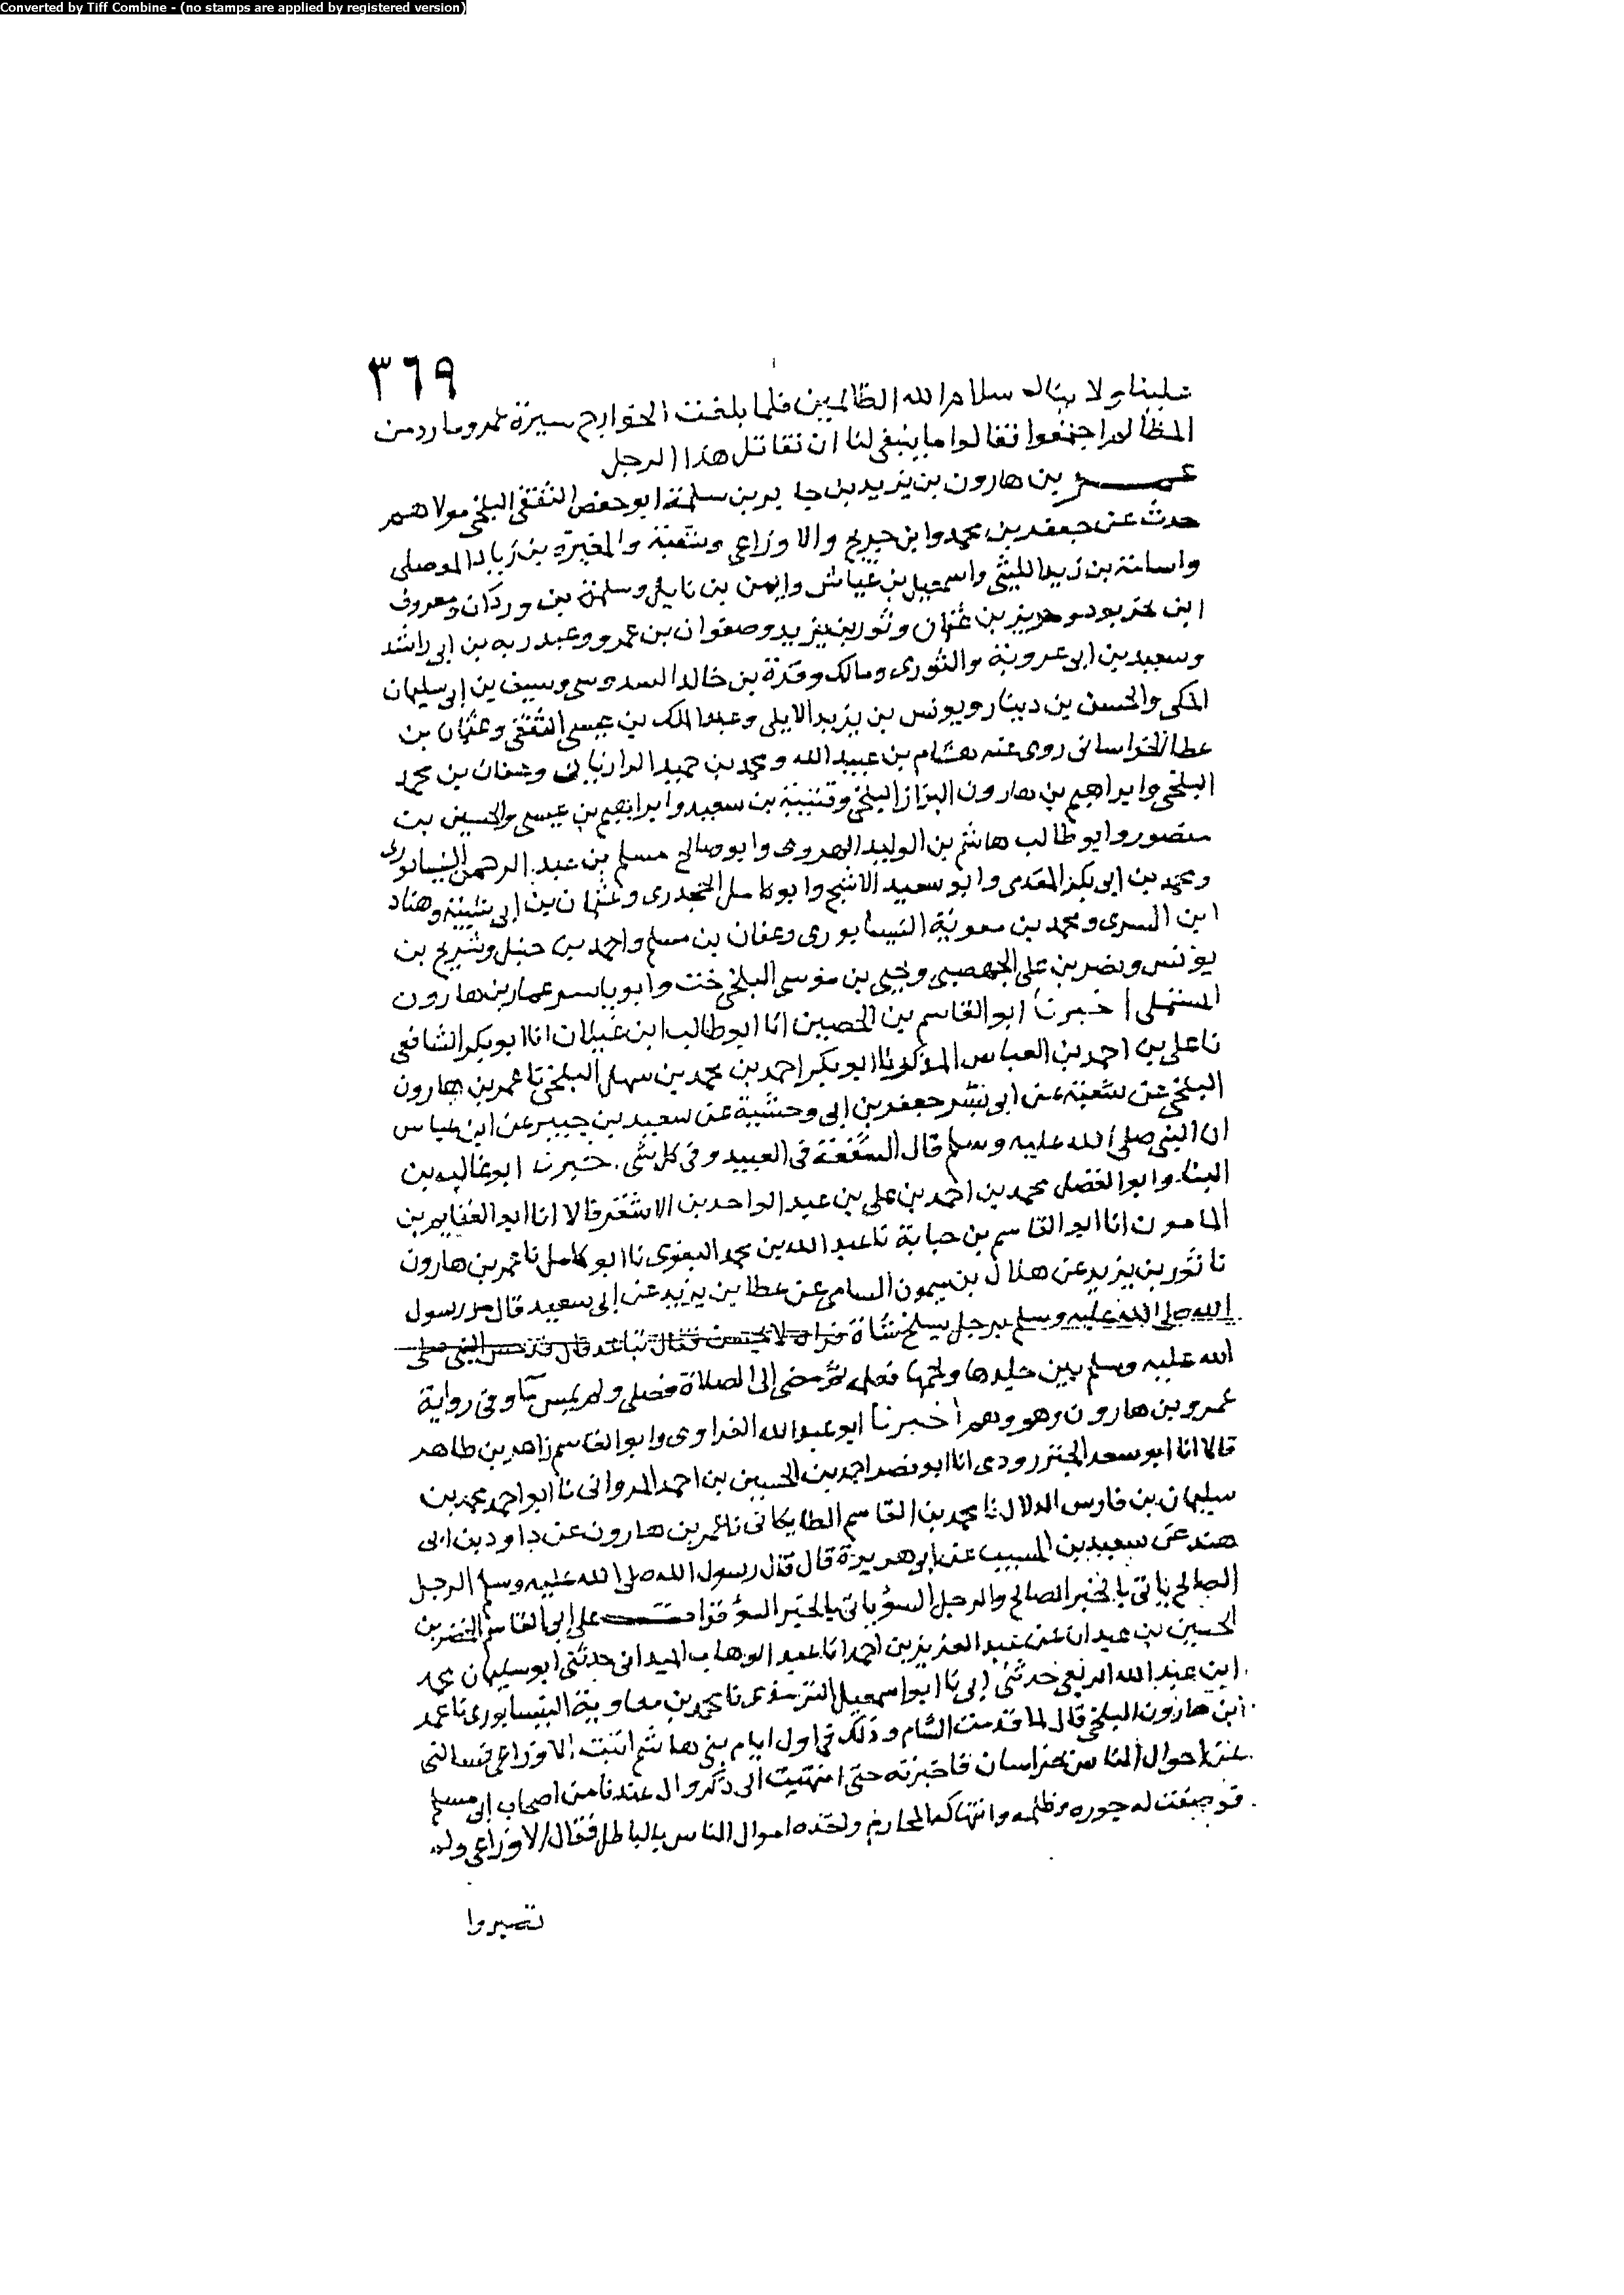 Converted by Tiff Combine - (no stamps are applied by registered version)
٣٦٩
علينا ولا ينال سلام الله الظالمين فلما بلغت الخوارج سيرة عمر وما رد من
المظالم اجتمعوا فقالوا ما ينبغي لنا ان نقاتل هذا الرجل
عمر بن هارون بن يزيد بن جابر بن سلمة ابو حفص الثقفي البلخي مولاهم
حدث عن جعفر بن محمد وابن جريج والاوزاعي وشعبة والمغيرة بن زياد الموصلي
واسامة بن زيد الليثي واسمعيل بن عياش وايمن بن نابل وسلمة بن وردان ومعروف
ابن خربوذ وحريز بن عثمان وثور بن يزيد وصفوان بن عمرو وعبد ربه بن ابي راشد
وسعيد بن ابي عروبة والثوري ومالك وقرة بن خالد السدوسي وسيف بن ابي سليمان
المكي والحسن بن دينار ويونس بن يزيد الايلي وعبد الملك بن عيسى الثقفي وعثمان بن
عطا الخراساني روى عنه هشام بن عبيد الله ومحمد بن حميد الرازيان وعفان بن محمد
البلخي وابراهيم بن هارون البزاز البلخي وقتيبة بن سعيد وابراهيم بن عيسى والحسين بن
منصور وابو طالب هاشم بن الوليد الهروي وابو صالح مسلم بن عبد الرحمن النيسابوري
ومحمد بن ابي بكر المقدمي وابو سعيد الاشج وابو كامل الجحدري وعثمان بن ابي شيبة وهناد
ابن السري ومحمد بن معوية النيسابوري وعفان بن مسلم واحمد بن حنبل وشريح بن
يونس ونصر بن علي الجهضمي ويحيى بن موسى البلخي خت وابو ياسر عمار بن هارون
المستملي اخبرنا ابو القاسم بن الحصين انا ابو طالب ابن غيلان انا ابو بكر الشافعي
نا علي بن احمد بن العباس المذكر نا ابو بكر احمد بن محمد بن سهل البلخي نا عمر بن هارون
البلخي عن شعبة عن ابي بشر جعفر بن ابي وحشية عن سعيد بن جبير عن ابن عباس
ان النبي صلى الله عليه وسلم قال الشفعة في العبيد وفي كل شي. خبرنا ابو غالب بن
البنا وابو الفضل محمد بن احمد بن علي بن عبد الواحد بن الاشقر قالا انا ابو الغنايم بن
المامون انا ابو القاسم بن حبابة نا عبد الله بن محمد البغوي نا ابو كامل نا عمر بن هارون
نا ثور بن يزيد عن هلال بن ميمون السامي عن عطا بن يزيد عن ابي سعيد قال مر رسول
الله صلى الله عليه وسلم برجل يسلخ شاة فراه لا يحسن فقال تباعد قال فدحس النبي صلى
الله عليه وسلم بين جلدها ولحمها فعل ثم مضى الى الصلاة فصلى ولم يمس ما وفي رواية
عمرو بن هارون وهو وهم اخبرنا ابو عبد الله الفراوي وابو القاسم زاهر بن طاهر
قالا انا ابو سعد الجنزرودي انا ابو نصر احمد بن الحسين بن احمد المرواني نا ابو احمد محمد بن
سليمان بن فارس الدلال نا محمد بن القاسم الطايكاني نا عمر بن هارون عن داود بن ابي
هند عن سعيد بن المسيب عن ابي هريرة قال قال رسول الله صلى الله عليه وسلم الرجل
الصالح ياتي بالخبر الصالح والرجل السؤ ياتي بالخبر السؤ قرات على ابي القاسم الخضر بن
الحسين بن عبدان عن عبد العزيز بن احمد انا عبد الوهاب الميداني حدثني ابو سليمان محمد
ابن عبد الله الربعي حدثني ابي نا ابو اسمعيل الترمذي نا محمد بن معاوية النيسابوري نا عمر
ابن هارون البلخي قال لما قدمت الشام وذلك في اول ايام بني هاشم اتيت الاوزاعي فسالني
عن احوال الناس بخراسان فاخبرته حتى انتهيت الى ذكر وال عندنا من اصحاب ابي مسلم
فوصفت له جوره وظلمه وانتهاكه المحارم واخذه اموال الناس بالباطل فقال الاوزاعي ولم
تصيروا